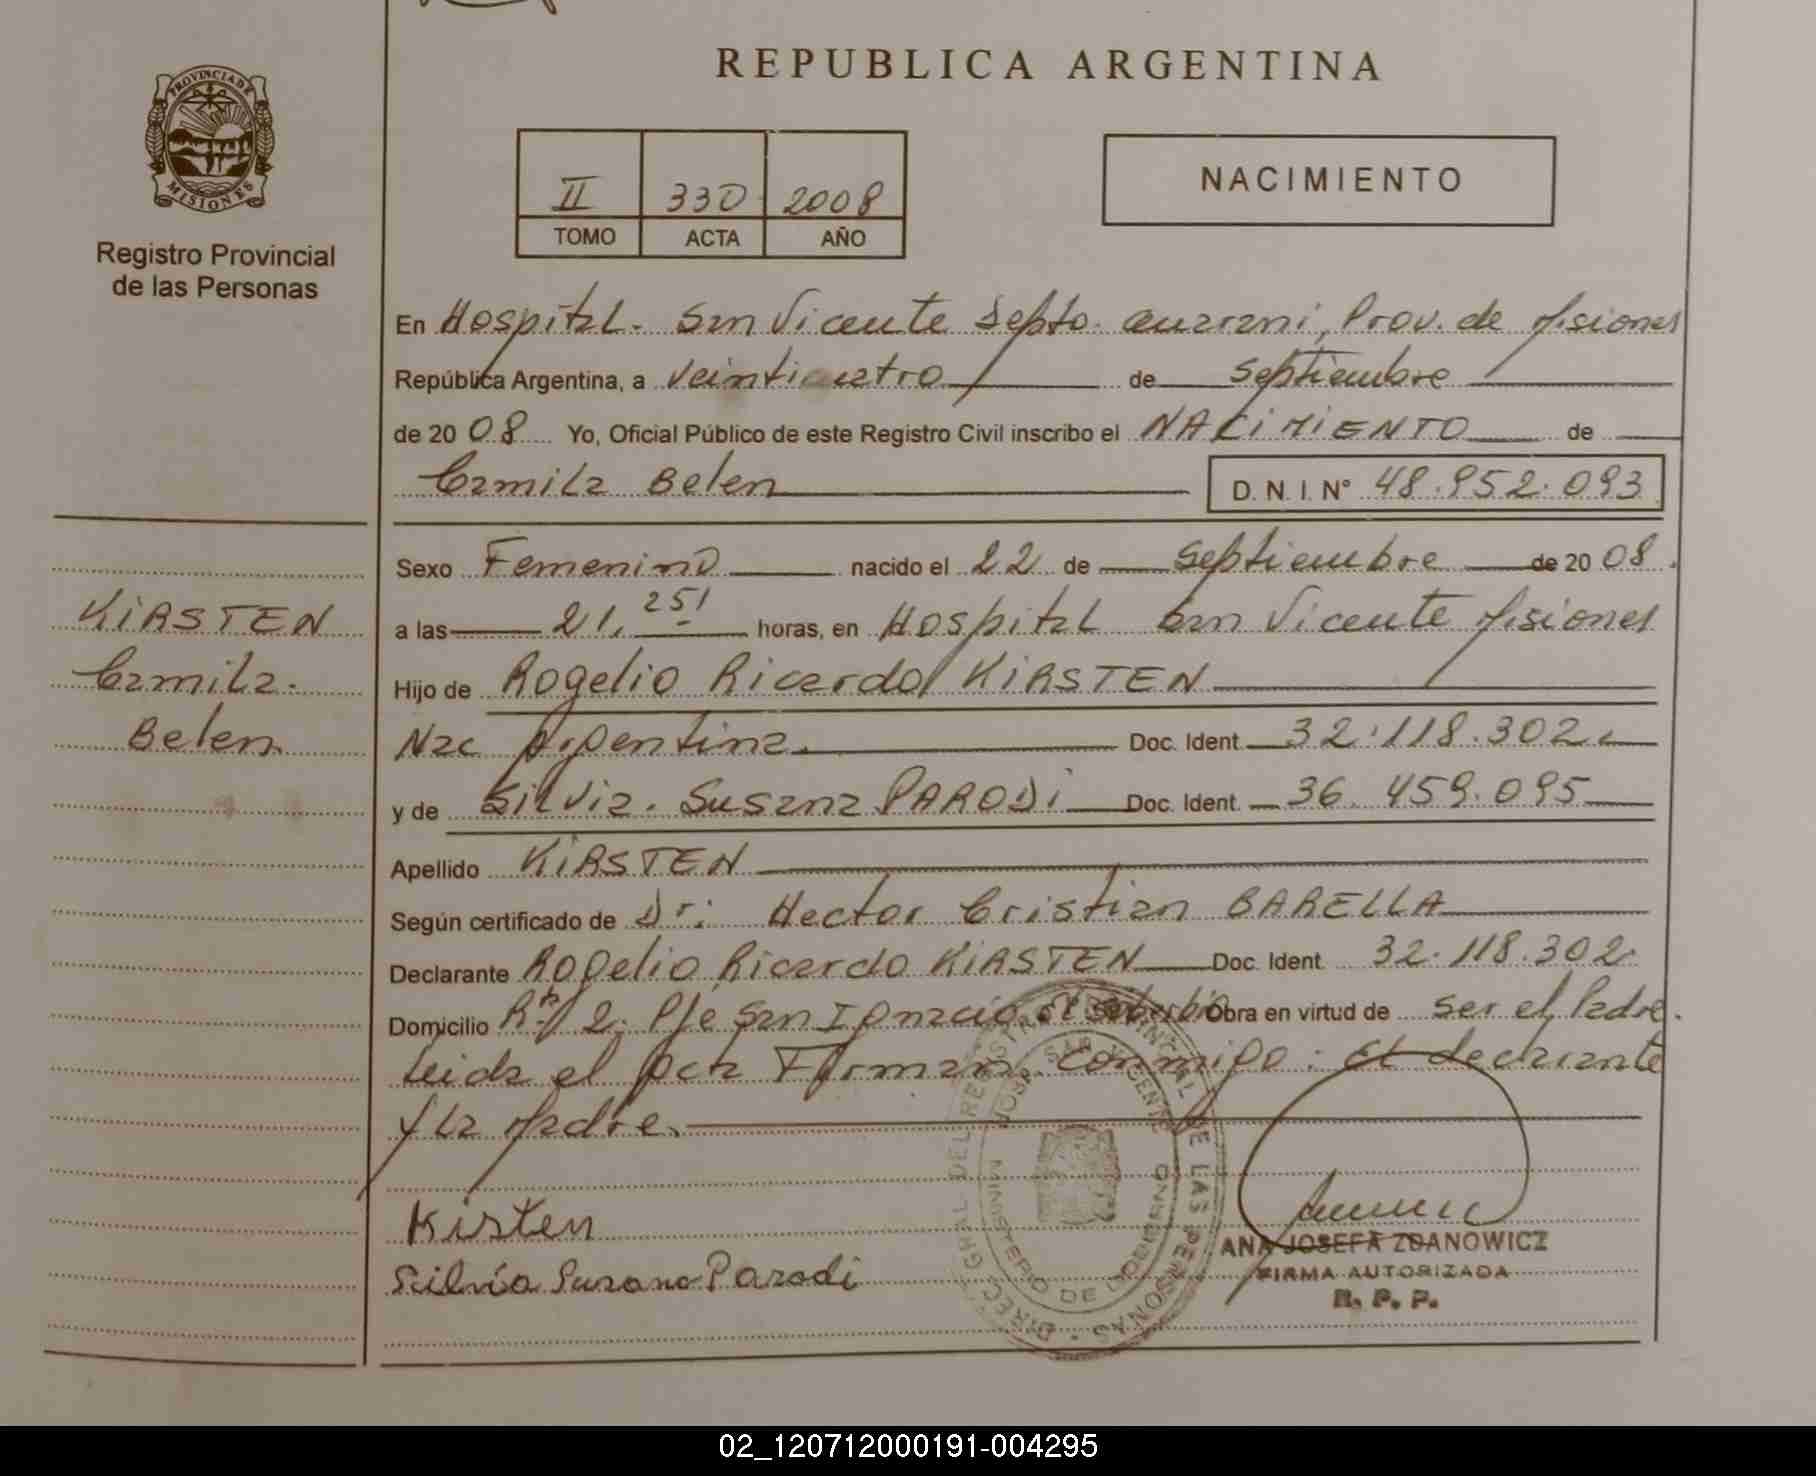 REPUBLICA ARGENTINA
PROVINCIA DE
MISIONES
Registro Provincial
de las Personas
II 330 2008
TOMO ACTA AÑO
NACIMIENTO
En Hospital. San Vicente Depto. Guarani, Prov. de Misiones
República Argentina, a veinticuatro de Septiembre
de 20 08 Yo, Oficial Público de este Registro Civil inscribo el NACIMIENTO de
Camila Belen D. N. I. N° 48.952.093
KIRSTEN
Camila.
Belen.
Sexo Femenino nacido el 22 de Septiembre de 20 08.
a las 21, 25' horas, en Hospital San Vicente Misiones
Hijo de Rogelio Ricardo KIRSTEN
Nac Argentina. Doc. Ident. 32.118.302.
y de Silvia. Susana PARODI Doc. Ident. 36.459.095
Apellido KIRSTEN
Según certificado de Dr: Hector Cristian BARELLA
Declarante Rogelio Ricardo KIRSTEN Doc. Ident. 32.118.302.
Domicilio 2. Pje San Ignacio. Obra en virtud de ser el Padre.
Leida el acta Firman. Conmigo: El declarante
y la Madre.
Kirsten
Scilvia Susana Parodi
DIREC. GRAL DEL REGISTRO PROVINCIAL DE LAS PERSONAS
HOSP. SAN VICENTE
MINISTERIO DE GOBIERNO
ANA JOSEFA ZDANOWICZ
FIRMA AUTORIZADA
R. P. P.
02_120712000191-004295